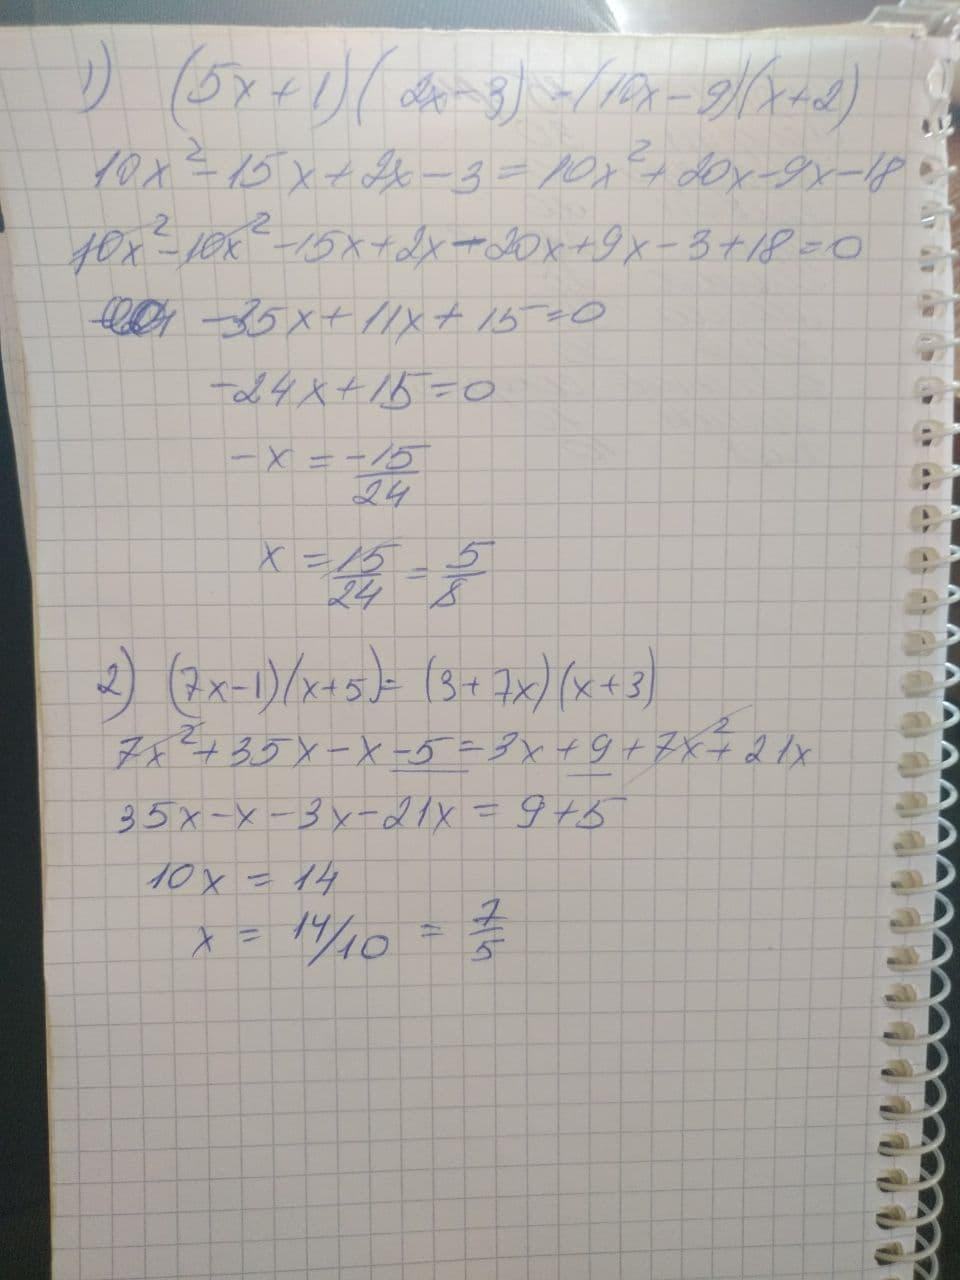 1) (5x+1)(2x-3) = (10x-9)(x+2)
10x² - 15x + 2x - 3 = 10x² + 20x - 9x - 18
10x² - 10x² - 15x + 2x - 20x + 9x - 3 + 18 = 0
-35x + 11x + 15 = 0
-24x + 15 = 0
-x = -15/24
x = 15/24 = 5/8
2) (7x-1)(x+5) = (3+7x)(x+3)
7x² + 35x - x - 5 = 3x + 9 + 7x² + 21x
35x - x - 3x - 21x = 9 + 5
10x = 14
x = 14/10 = 7/5